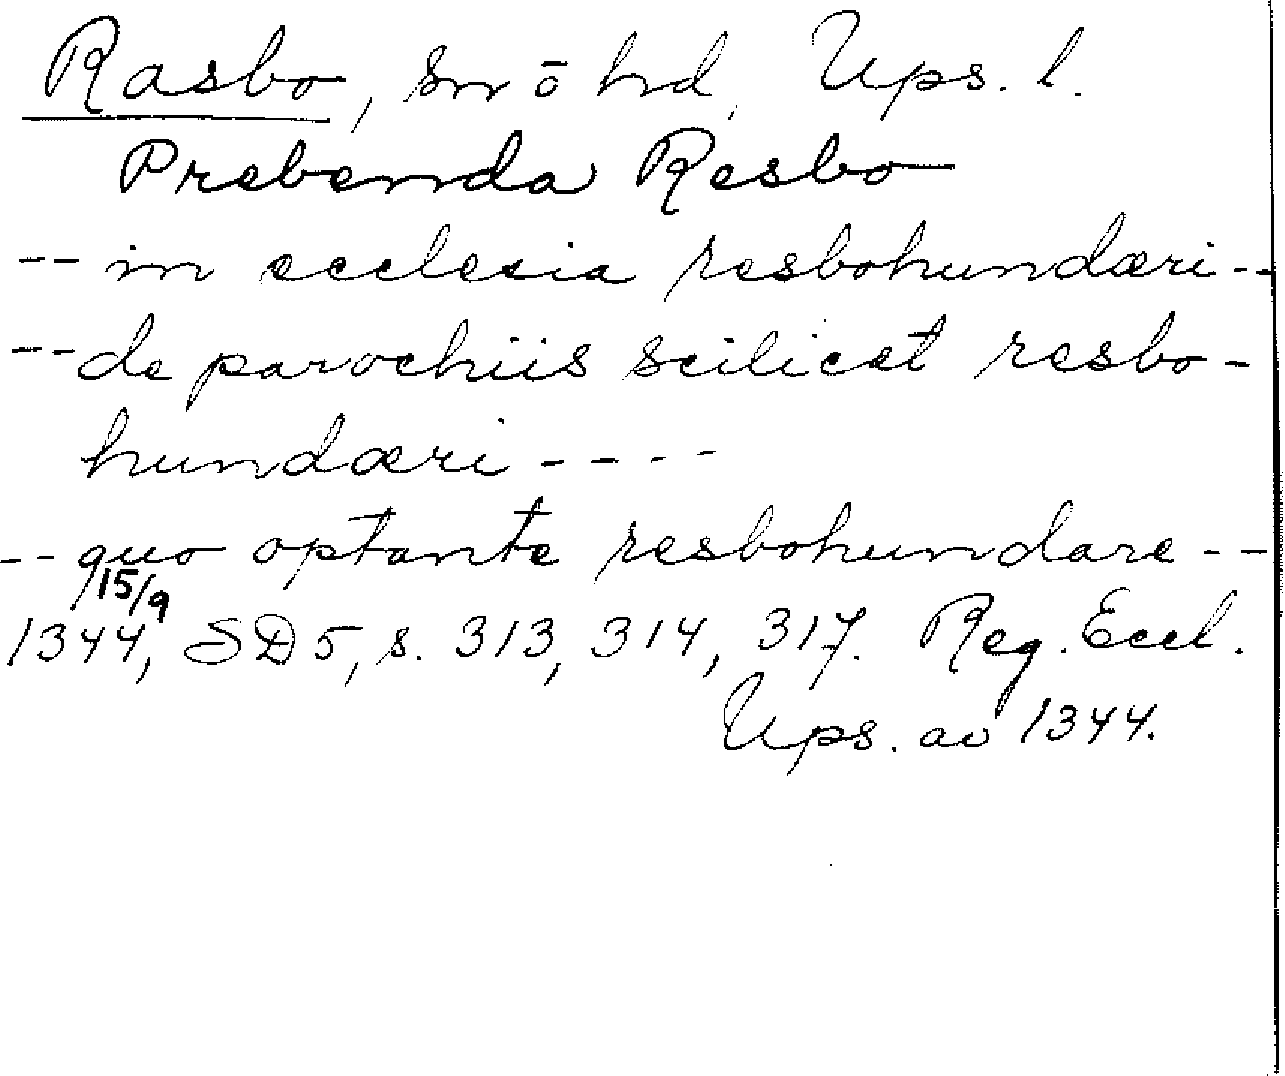 Rasbo, sn o hd, Ups. l.
Prebenda Resbo
-- in ecclesia resbohundæri --
-- de parochiis scilicet resbo-
hundæri ----
-- quo optante resbohundare --
15/9
1344, SD 5, s. 313, 314, 317. Reg. Eccl.
Ups. av 1344.